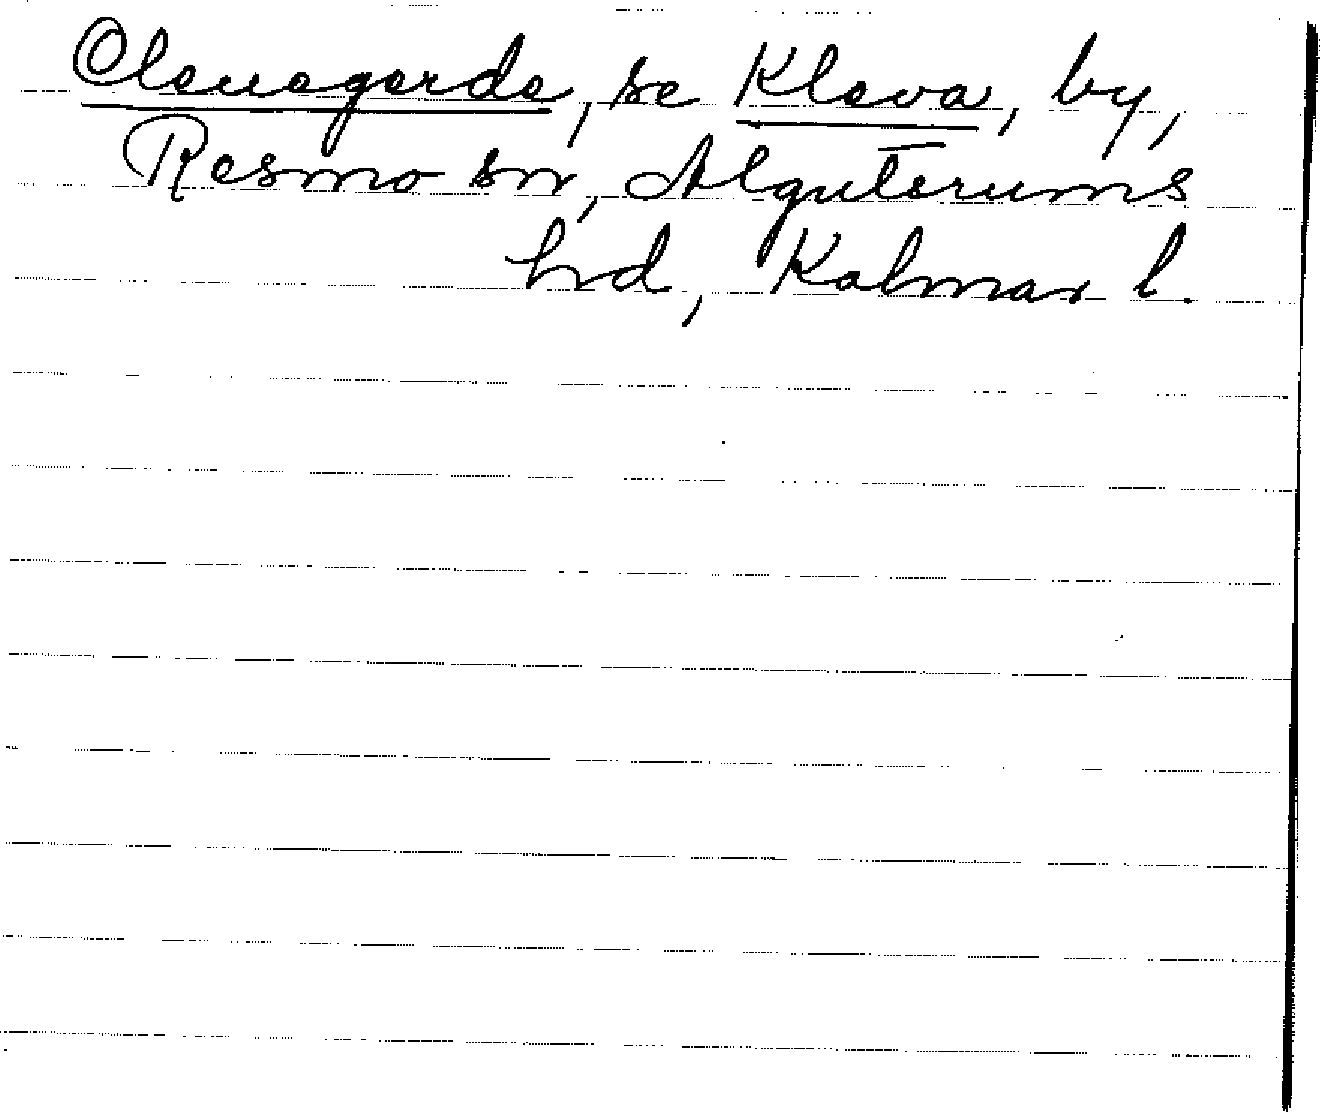 Cleuegerde, se Kleva, by,
Resmo sn, Algutsrums
hd, Kalmar l.